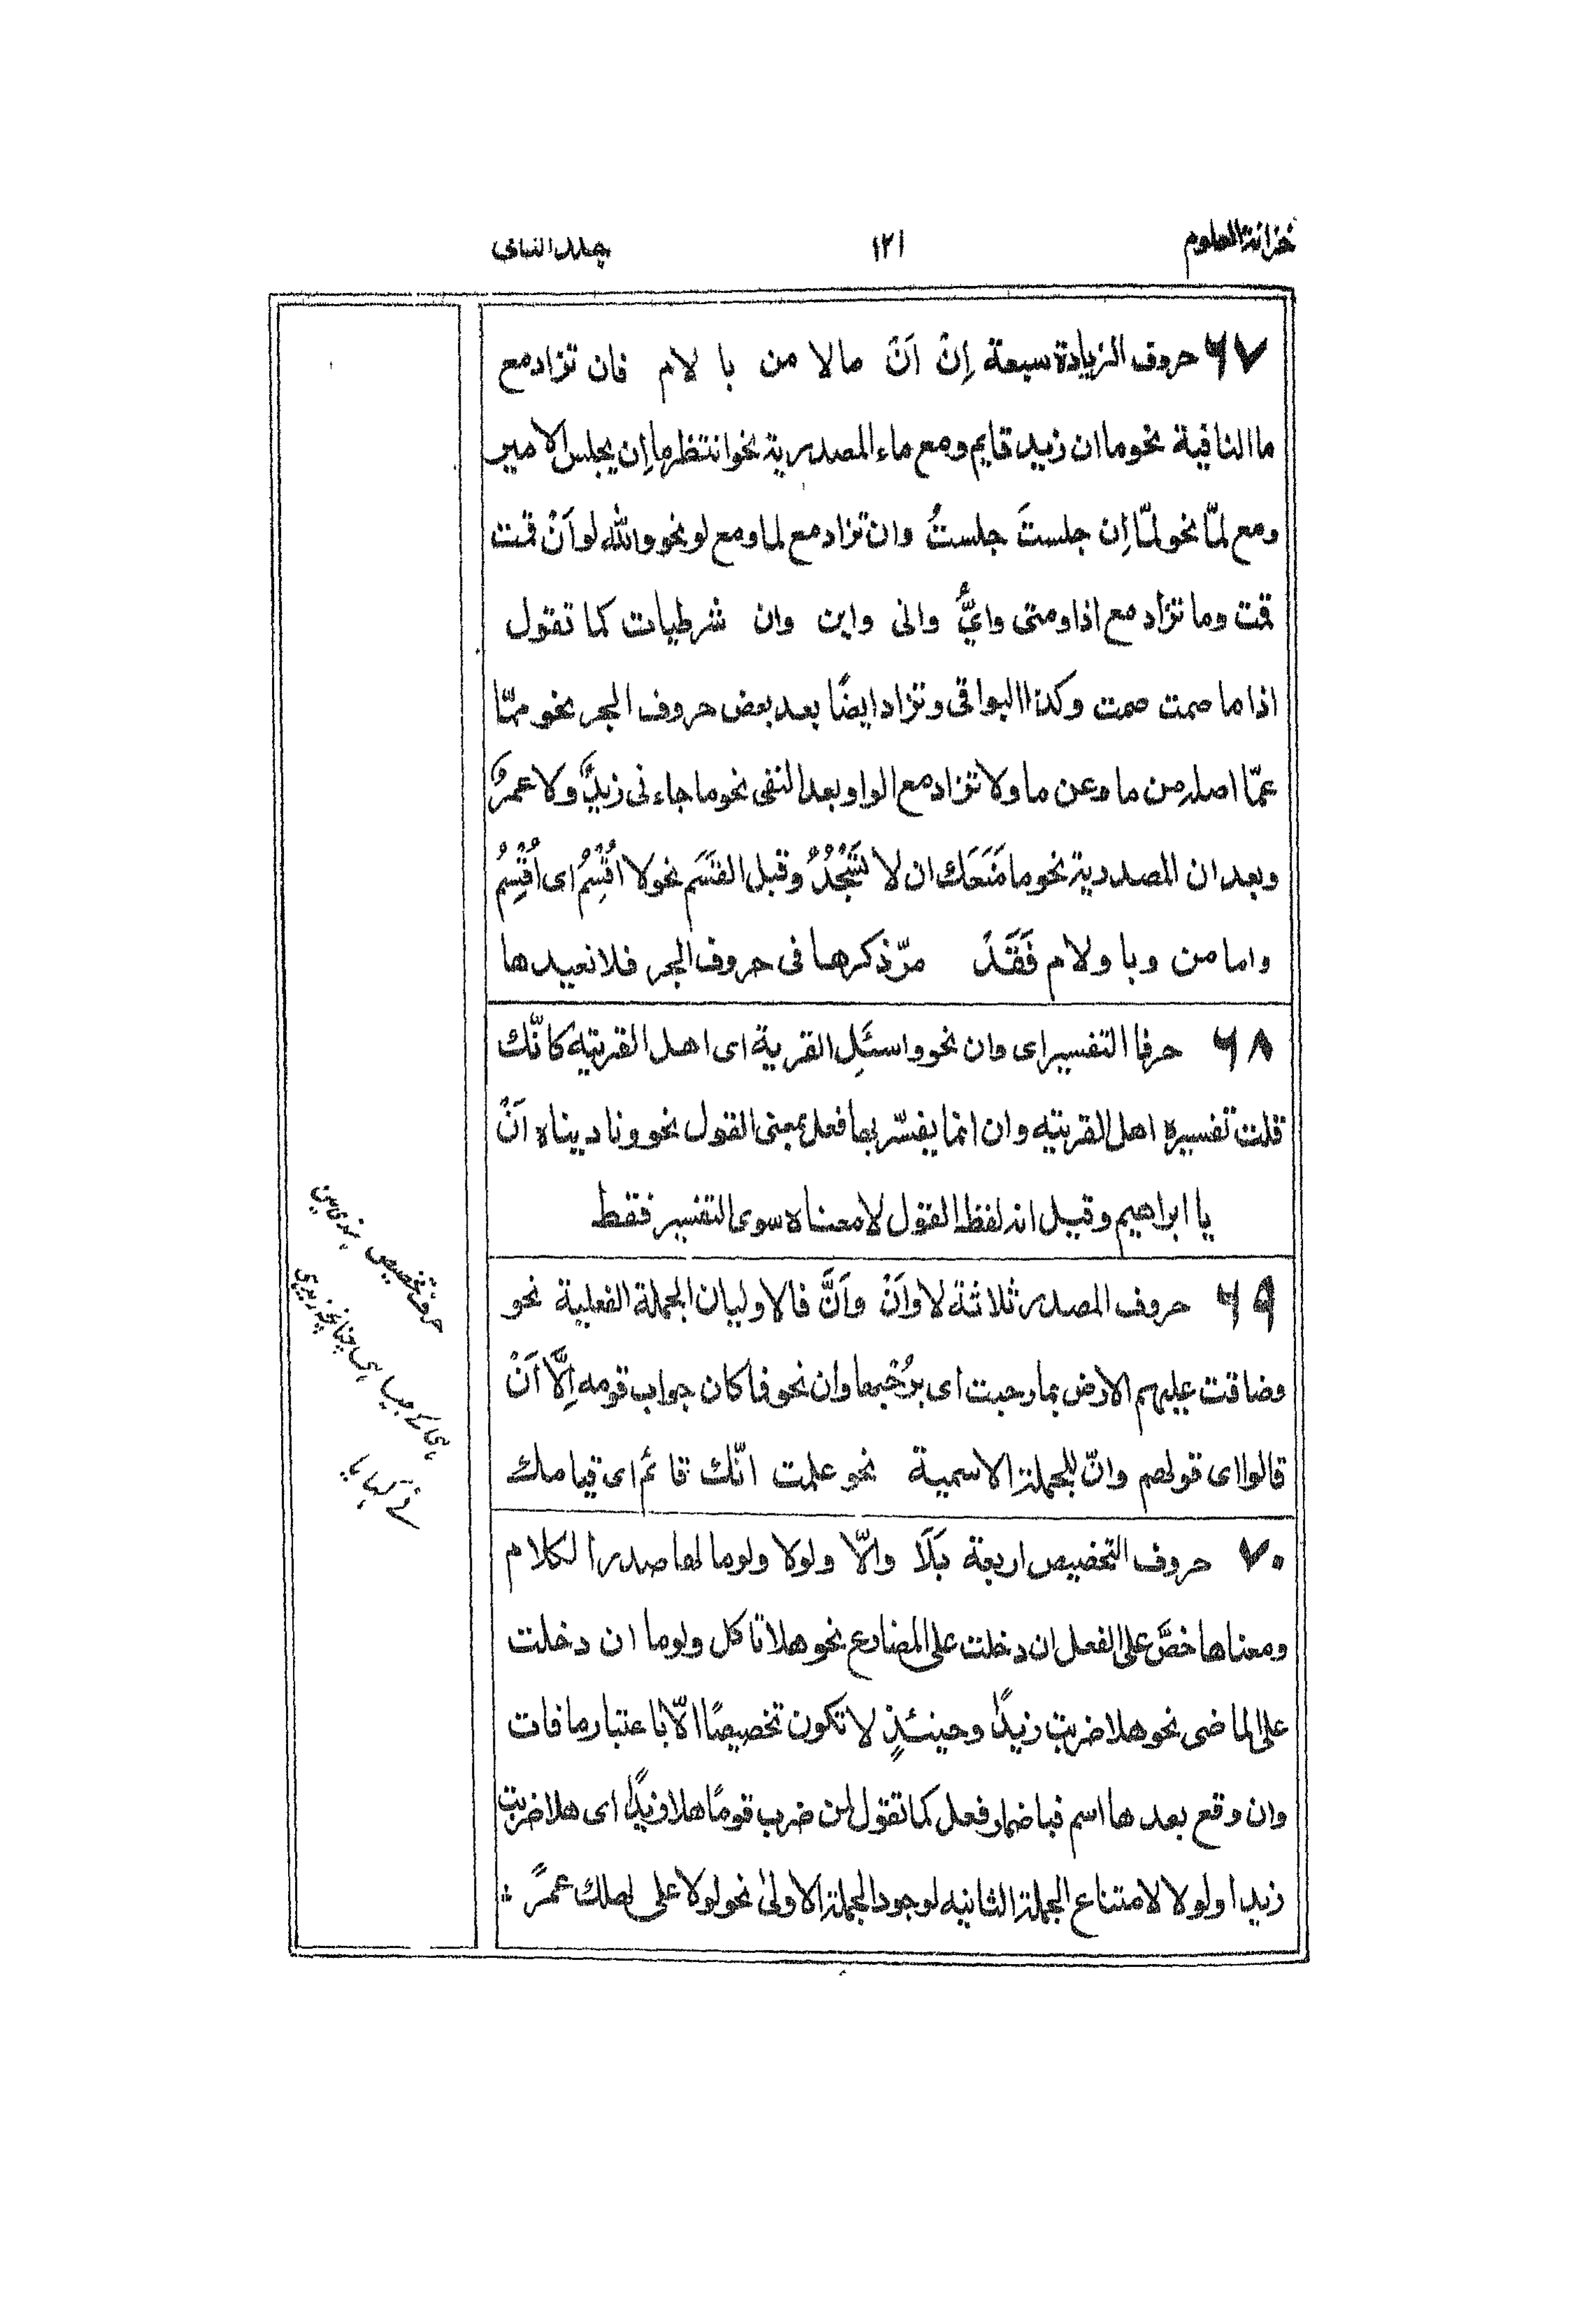 خزانة العلوم ١٢١ جلد الثانى
٦٧ حروف الزيادة سبعة اِنْ اَنْ ما لا من با لام فان تزاد مع
ما النافية نحو ما ان زيد قايم ومع ماء المصدرية نحو انتظر ما اِن يجلس الامير
ومع لمّا نحو لمّا اِن جلستَ جلستُ وان تزاد مع لما ومع لو نحو والله لو اَنْ قمت
قمت وما تزاد مع اذا ومتى وايُّ وانى واين وان شرطيات كما تقول
اذا ما صمت صمت وكذا البواقى وتزاد ايضًا بعد بعض حروف الجر نحو ممّا
عمّا اصله من ما وعن ما ولا تزاد مع الواو بعد النفى نحو ما جاءنى زيدٌ ولا عمرٌو
وبعد ان المصدرية نحو ما مَنَعَك ان لا تَسْجُدُ وقبل القَسَم نحو لا اُقْسِمُ اى اُقْسِمُ
واما من وبا ولام فَقَدْ مرّ ذكرها فى حروف الجر فلا نعيدها
٦٨ حرفا التفسير اى وان نحو واسئَلِ القرية اى اهل القرتيه كانّك
قلت تفسيره اهل القرتيه وان انما يفسّر بها فعل بمعنى القول نحو وناديناه اَنْ
يا ابراهيم وقيل انه لفظ القول لا معناه سوى التفسير فقط
٦٩ حروف المصدر ثلاثة لا واَنْ واَنَّ فالاوليان الجملة الفعلية نحو
وضاقت عليهم الارض بما رحبت اى برُحْبها وان نحو فما كان جواب قومه اِلَّا اَنْ
قالوا اى قولهم وانّ للجملة الاسمية نحو علمت انّك قائم اى قيامك
٧٠ حروف التخصيص اربعة بَلَا والّا ولولا ولوما لها صدر الكلام
ومعناها خصَّ على الفعل ان دخلت على المضارع نحو هلا تاكل ولوما ان دخلت
على الماضى نحو هلا ضربت زيدًا وحينئذٍ لا تكون تخصيصًا الّا باعتبار ما فات
وان وقع بعدها اسم فباضمار فعل كما تقول لمن ضرب قومًا هلا زيدًا اى هلا ضربت
زيدا ولولا لامتناع الجملة الثانيه لوجود الجملة الاولىٰ نحو لولا على لهلك عمرً
حروف تخصيص